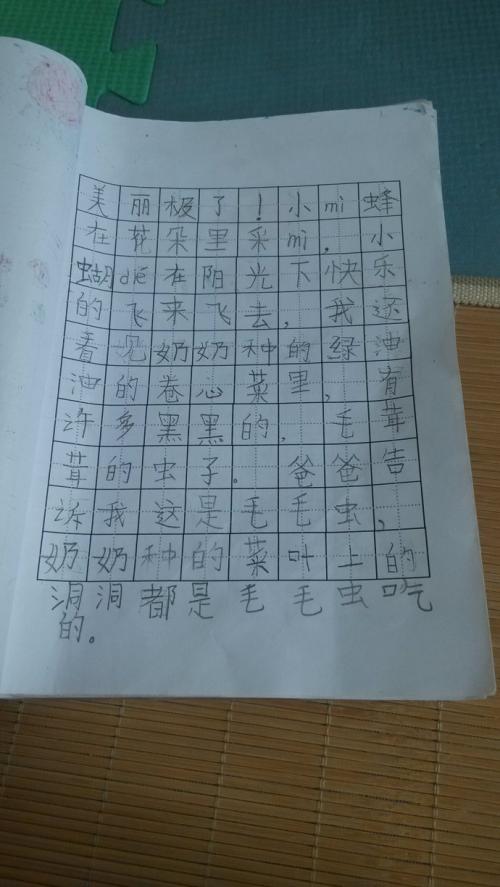 美丽极了！小mì蜂
在花朵里采mì，小
蝴dié在阳光下快乐
的飞来飞去，我还
看见奶奶种的绿油
油的卷心菜里，有
许多黑黑的，毛茸
茸的虫子。爸爸告
诉我这是毛毛虫，
奶奶种的菜叶上的
洞洞都是毛毛虫吃
的。